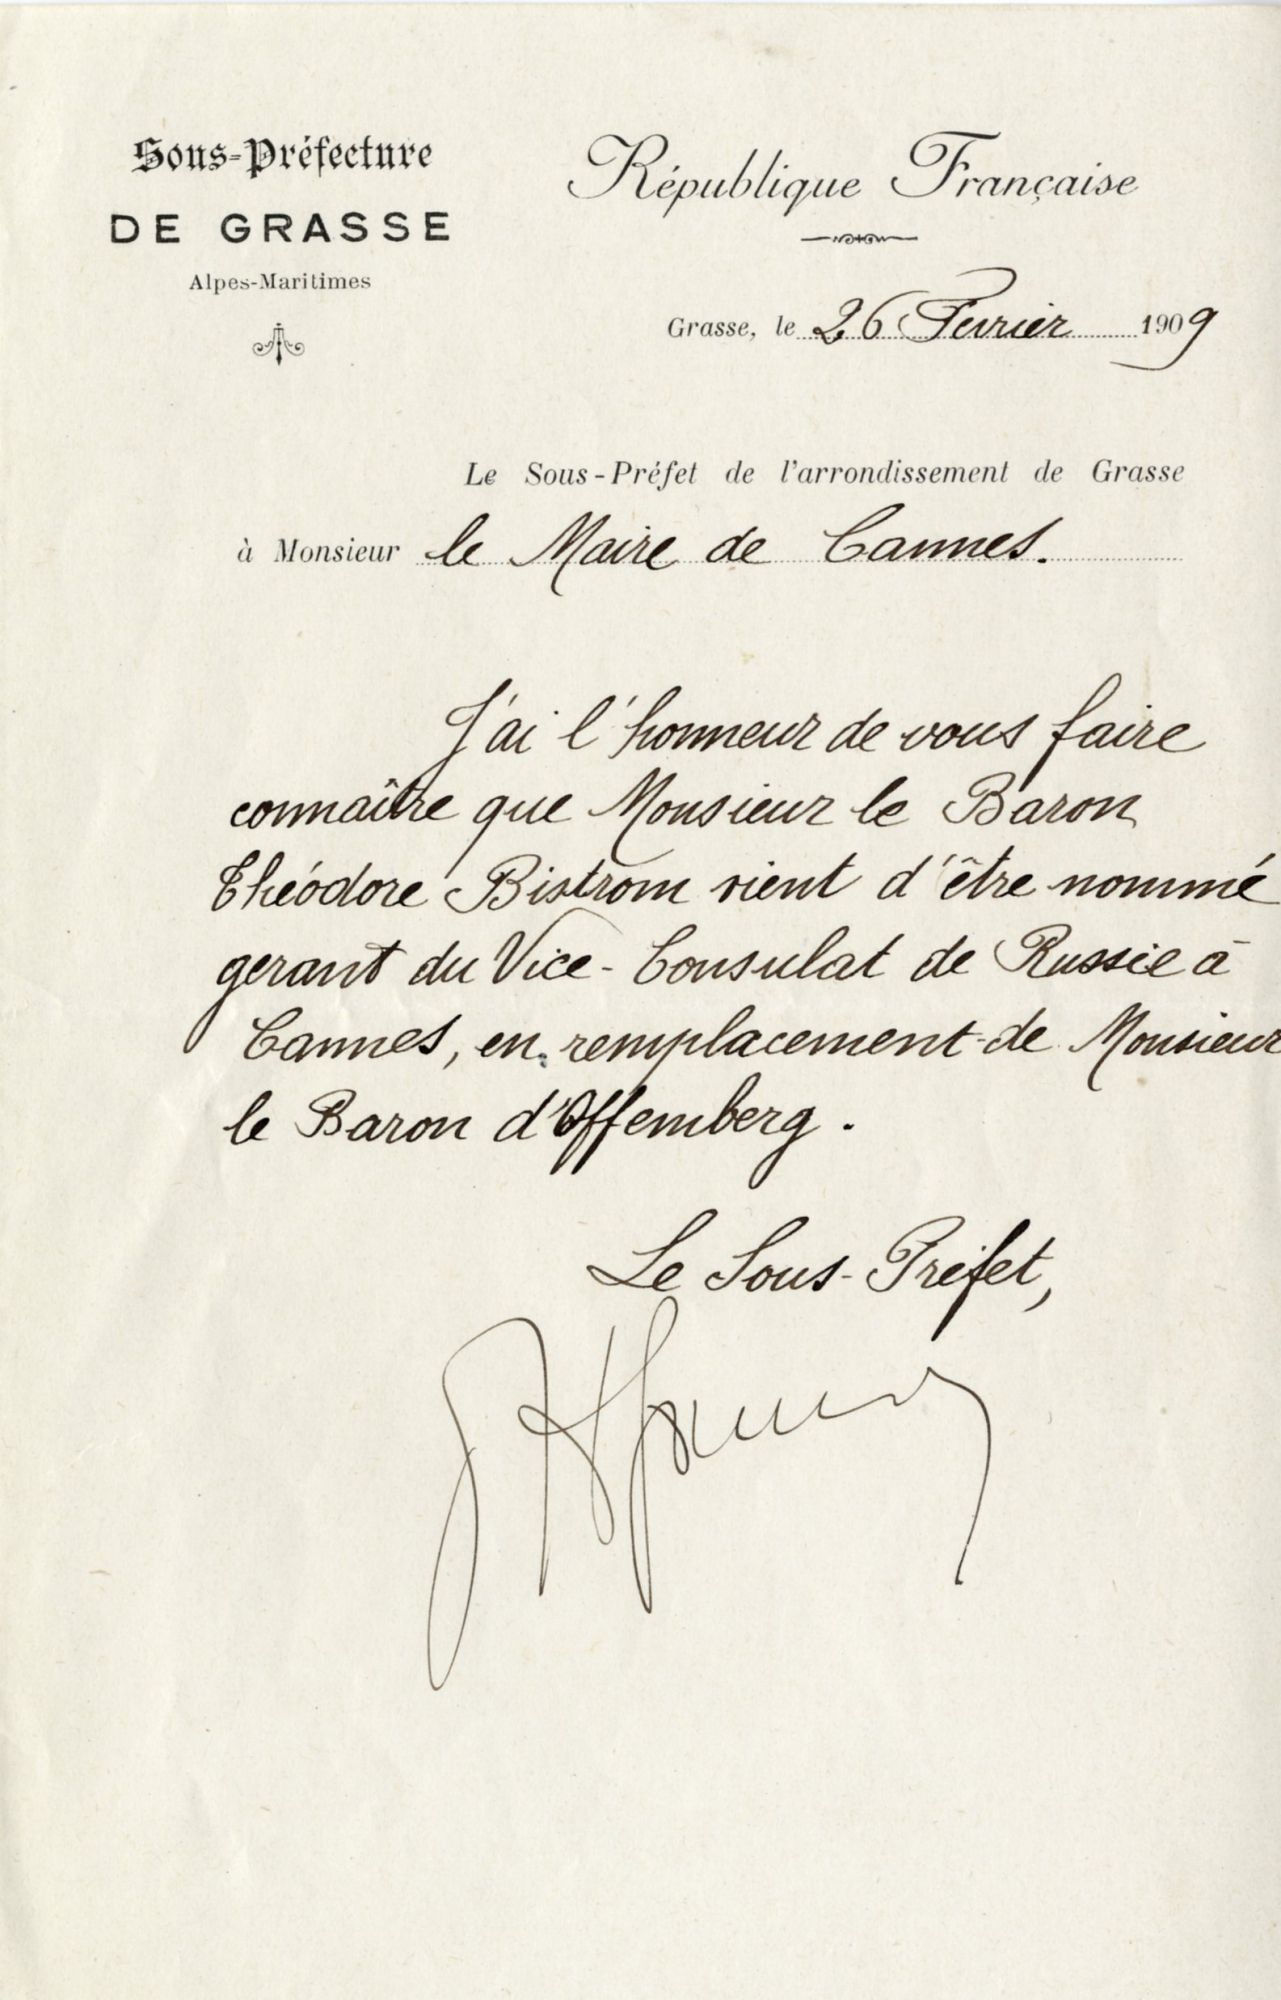 Sous-Préfecture
DE GRASSE
Alpes-Maritimes
République Française
Grasse, le 26 Fevrier 1909
Le Sous-Préfet de l'arrondissement de Grasse
à Monsieur le Maire de Cannes.
J'ai l'honneur de vous faire
connaître que Monsieur le Baron
Théodore Bistrom vient d'être nommé
gerant du Vice-Consulat de Russie à
Cannes, en remplacement de Monsieur
le Baron d'Offemberg.
Le Sous-Préfet,